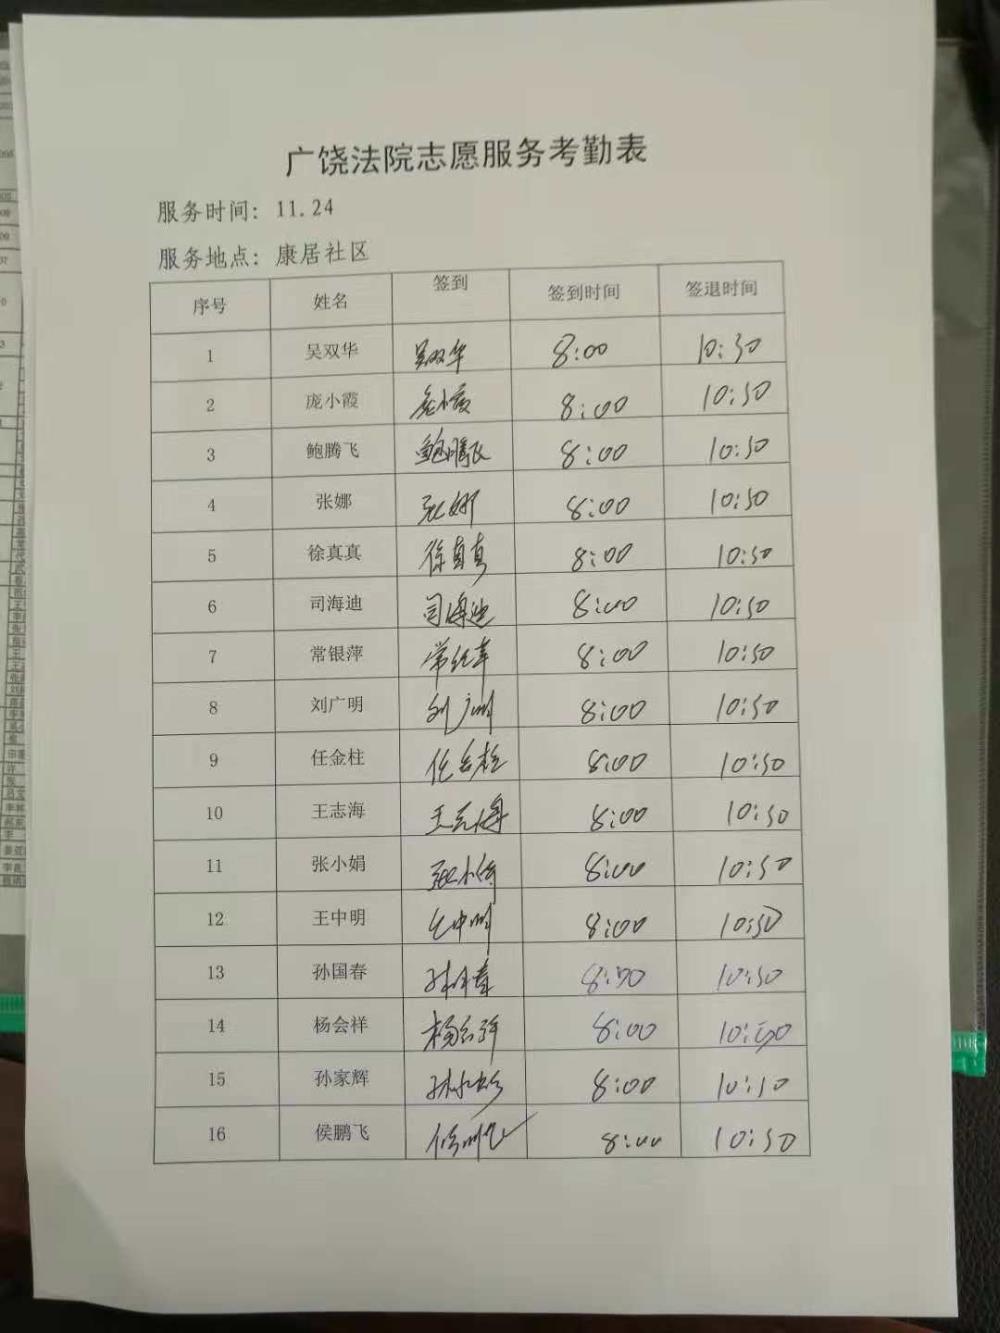 广饶法院志愿服务考勤表
服务时间：11.24
服务地点：康居社区
序号 姓名 签到 签到时间 签退时间
1 吴双华 吴双华 8:00 10:30
2 庞小霞 庞小霞 8:00 10:30
3 鲍腾飞 鲍腾飞 8:00 10:30
4 张娜 张娜 8:00 10:30
5 徐真真 徐真真 8:00 10:30
6 司海迪 司海迪 8:00 10:30
7 常银萍 常银萍 8:00 10:30
8 刘广明 刘广明 8:00 10:30
9 任金柱 任金柱 8:00 10:30
10 王志海 王志海 8:00 10:30
11 张小娟 张小娟 8:00 10:30
12 王中明 王中明 8:00 10:30
13 孙国春 孙国春 8:00 10:30
14 杨会祥 杨会祥 8:00
15 孙家辉 孙家辉 8:00
16 侯鹏飞 侯鹏飞 8:00 10:30